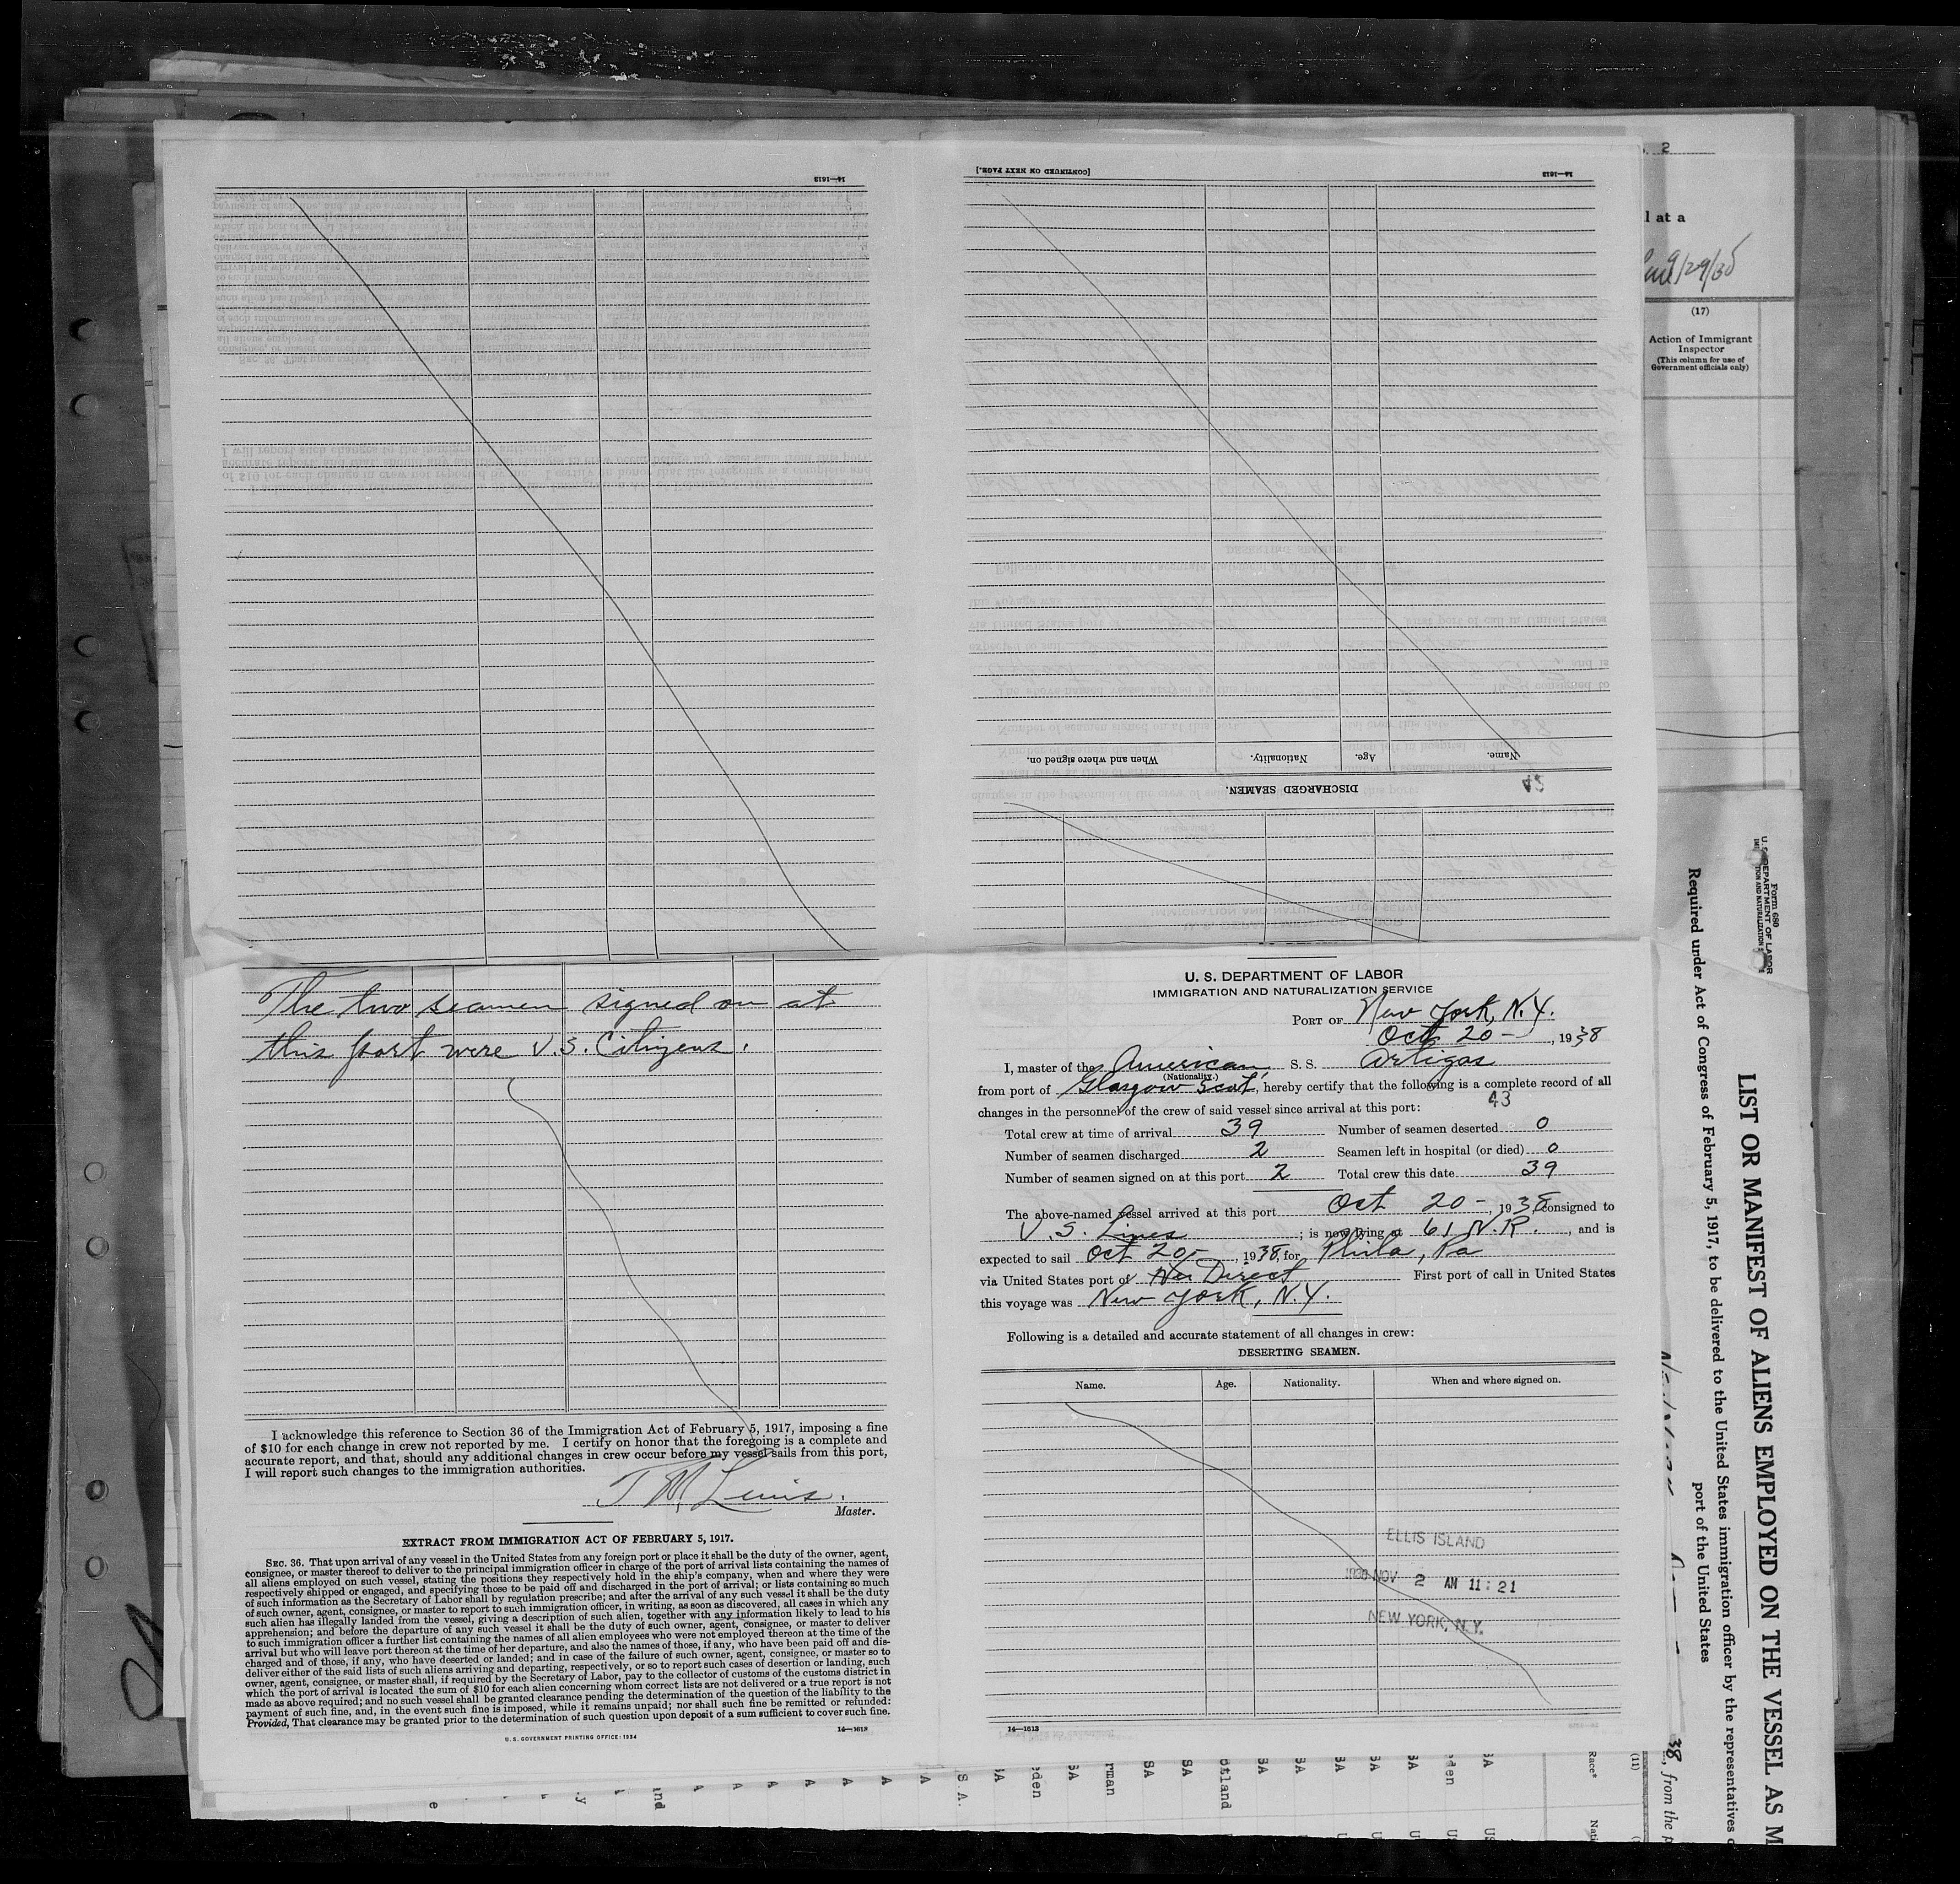 [CONTINUED ON NEXT PAGE.]
14—1613
14—1613
When and where signed on.
Nationality.
Age.
Name.
DISCHARGED SEAMEN.
2
l at a
9/29/38
(17)
Action of Immigrant
Inspector
(This column for use of
Government officials only)
The two seamen signed on at
this port were U.S. Citizens.
I acknowledge this reference to Section 36 of the Immigration Act of February 5, 1917, imposing a fine
of $10 for each change in crew not reported by me. I certify on honor that the foregoing is a complete and
accurate report, and that, should any additional changes in crew occur before my vessel sails from this port,
I will report such changes to the immigration authorities.
Master.
EXTRACT FROM IMMIGRATION ACT OF FEBRUARY 5, 1917.
SEC. 36. That upon arrival of any vessel in the United States from any foreign port or place it shall be the duty of the owner, agent,
consignee, or master thereof to deliver to the principal immigration officer in charge of the port of arrival lists containing the names of
all aliens employed on such vessel, stating the positions they respectively hold in the ship's company, when and where they were
respectively shipped or engaged, and specifying those to be paid off and discharged in the port of arrival; or lists containing so much
of such information as the Secretary of Labor shall by regulation prescribe; and after the arrival of any such vessel it shall be the duty
of such owner, agent, consignee, or master to report to such immigration officer, in writing, as soon as discovered, all cases in which any
such alien has illegally landed from the vessel, giving a description of such alien, together with any information likely to lead to his
apprehension; and before the departure of any such vessel it shall be the duty of such owner, agent, consignee, or master to deliver
to such immigration officer a further list containing the names of all alien employees who were not employed thereon at the time of the
arrival but who will leave port thereon at the time of her departure, and also the names of those, if any, who have been paid off and dis-
charged and of those, if any, who have deserted or landed; and in case of the failure of such owner, agent, consignee, or master so to
deliver either of the said lists of such aliens arriving and departing, respectively, or so to report such cases of desertion or landing, such
owner, agent, consignee, or master shall, if required by the Secretary of Labor, pay to the collector of customs of the customs district in
which the port of arrival is located the sum of $10 for each alien concerning whom correct lists are not delivered or a true report is not
made as above required; and no such vessel shall be granted clearance pending the determination of the question of the liability to the
payment of such fine, and, in the event such fine is imposed, while it remains unpaid; nor shall such fine be remitted or refunded:
Provided, That clearance may be granted prior to the determination of such question upon deposit of a sum sufficient to cover such fine.
U. S. GOVERNMENT PRINTING OFFICE: 1934
14—1613
U. S. DEPARTMENT OF LABOR
IMMIGRATION AND NATURALIZATION SERVICE
PORT OF New York, N.Y.
Oct 20-, 1938
I, master of the American S. S. Artigas
(Nationality.)
from port of Glasgow Scot, hereby certify that the following is a complete record of all
changes in the personnel of the crew of said vessel since arrival at this port:
43
Total crew at time of arrival 39 Number of seamen deserted 0
Number of seamen discharged 2 Seamen left in hospital (or died) 0
Number of seamen signed on at this port 2 Total crew this date 39
The above-named vessel arrived at this port Oct 20-, 1938, consigned to
U.S. Lines; is now lying at 61 N.R., and is
expected to sail Oct 20-, 1938, for Phila, Pa
via United States port of Direct First port of call in United States
this voyage was New York, N.Y.
Following is a detailed and accurate statement of all changes in crew:
DESERTING SEAMEN.
Name. Age. Nationality. When and where signed on.
ELLIS ISLAND
1938 NOV 2 AM 11:21
NEW YORK, N.Y.
14—1613
Form 680
U. S. DEPARTMENT OF LABOR
LIST OR MANIFEST OF ALIENS EMPLOYED ON THE VESSEL AS M
Required under Act of Congress of February 5, 1917, to be delivered to the United States immigration officer by the representatives o
port of the United States
38, from the p
(11)
Race*
Nati